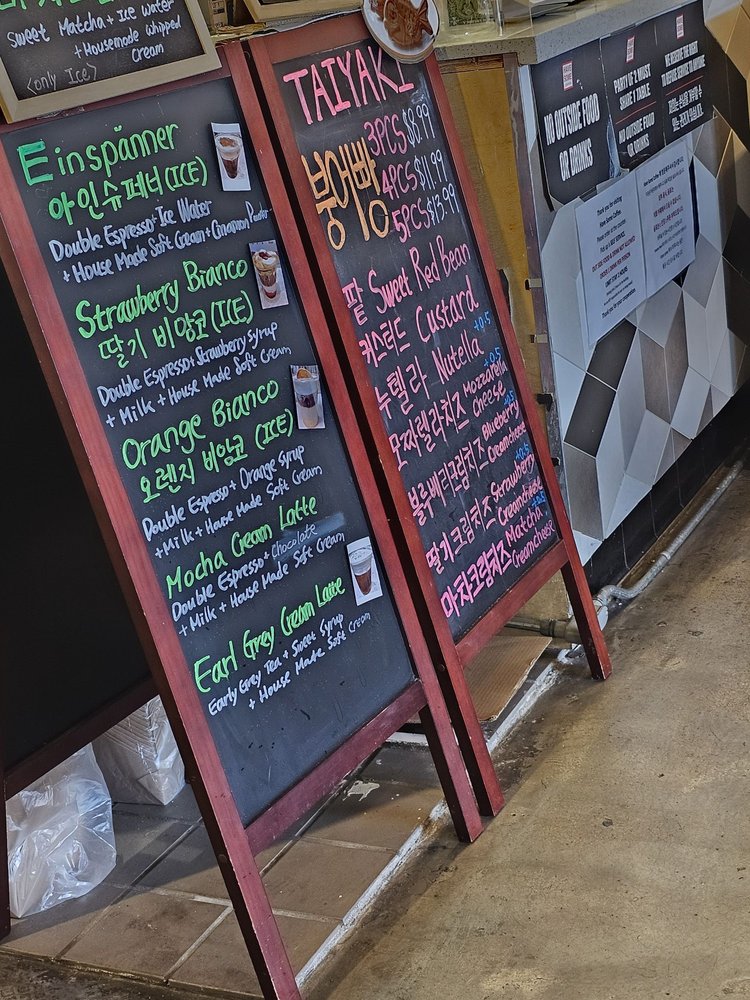 Sweet Matcha + Ice Water
+ Housemade whipped
Cream
<only Ice>
Einspänner
아인슈페너 (ICE)
Double Espresso + Ice Water
+ House Made Soft Cream + Cinnamon Powder
Strawberry Bianco
딸기 비앙코 (ICE)
Double Espresso + Strawberry Syrup
+ Milk + House Made Soft Cream
Orange Bianco
오렌지 비앙코 (ICE)
Double Espresso + Orange Syrup
+ Milk + House Made Soft Cream
Mocha Cream Latte
Double Espresso + Chocolate
+ Milk + House Made Soft Cream
Earl Grey Cream Latte
Early Grey Tea + Sweet Syrup
+ House Made Soft Cream
TAIYAKI
붕어빵
3PCS $8.99
4PCS $11.99
5PCS $13.99
팥 Sweet Red Bean
커스터드 Custard
누텔라 Nutella +0.5
모짜렐라치즈 Mozzarella Cheese +0.5
블루베리크림치즈 Blueberry Creamcheese
딸기크림치즈 Strawberry Creamcheese +0.5
마차크림치즈 Matcha Creamcheese
NO OUTSIDE FOOD
OR DRINKS
PARTY OF 2 MUST
SHARE 1 TABLE
NO OUTSIDE FOOD
OR DRINKS
WE RESERVE THE RIGHT
TO REFUSE SERVICE TO ANYONE
Thank you for your cooperation